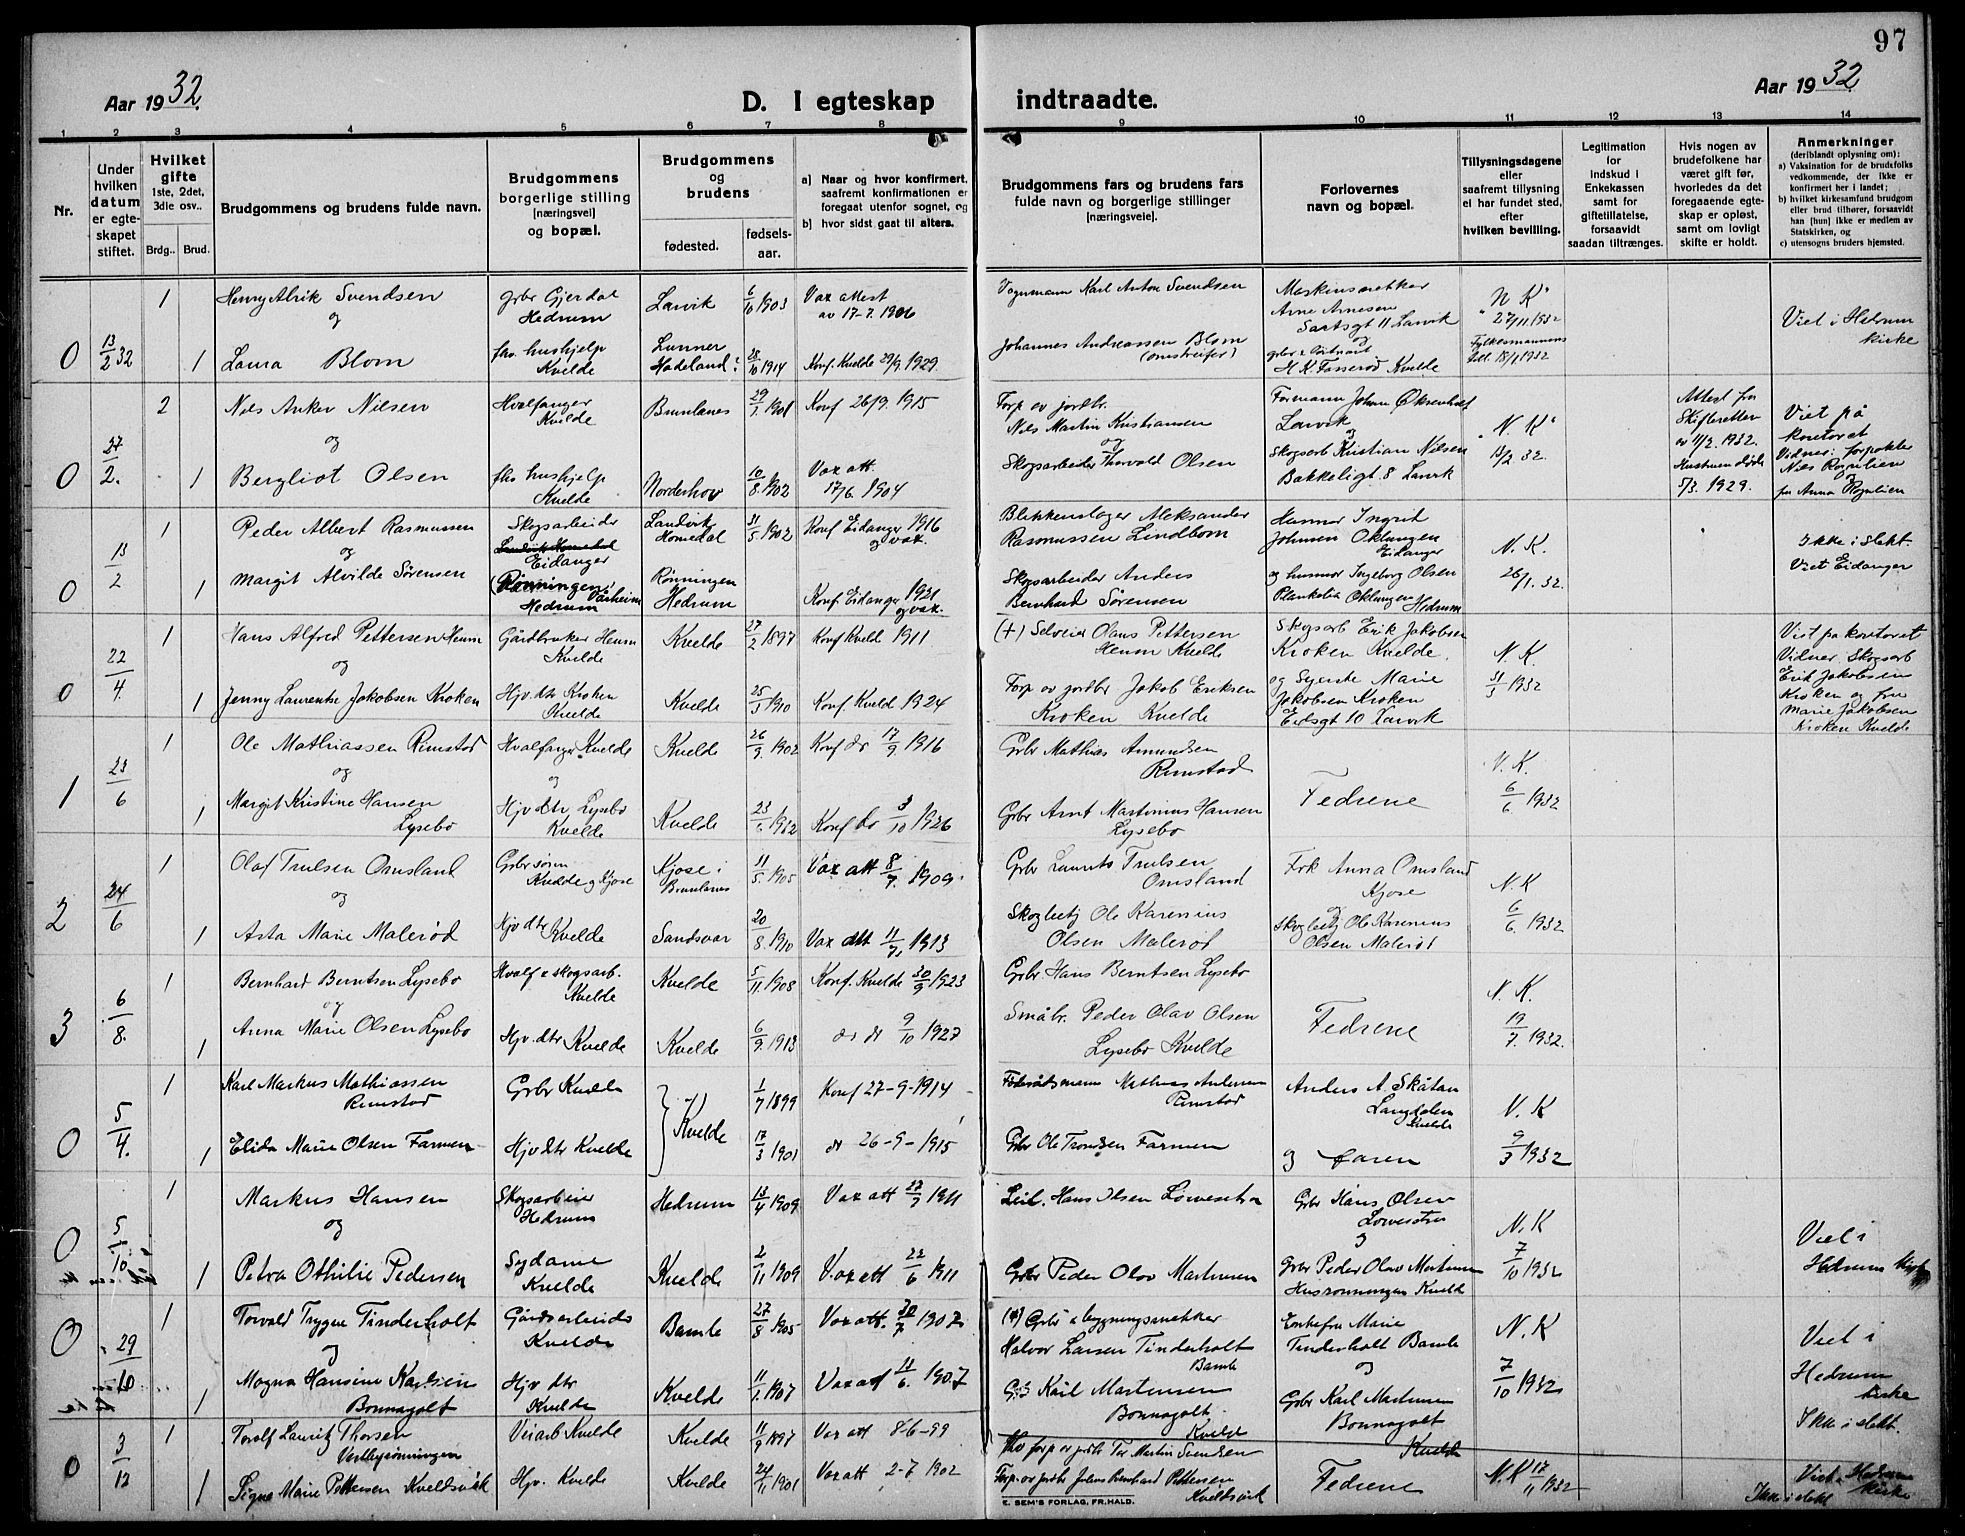 97
Aar 1932.
D. I egteskap
indtraadte.
Aar 1932.
1 2 3 4 5 6 7 8 9 10 11 12 13 14
Nr.
Under
hvilken
datum
er egte-
skapet
stiftet.
Hvilket
gifte
1ste, 2det,
3die osv..
Brdg..
Brud.
Brudgommens og brudens fulde navn.
Brudgommens
borgerlige stilling
[næringsvei]
og bopæl.
Brudgommens
og
brudens
fødested.
fødsels-
aar.
a) Naar og hvor konfirmert,
saafremt konfirmationen er
foregaat utenfor sognet, og
b) hvor sidst gaat til alters.
Brudgommens fars og brudens fars
fulde navn og borgerlige stillinger
[næringsveie].
Forlovernes
navn og bopæl.
Tillysningsdagene
eller
saafremt tillysning
ei har fundet sted,
efter
hvilken bevilling.
Legitimation
for
indskud i
Enkekassen
samt for
giftetillatelse,
forsaavidt
saadan tiltrænges.
Hvis nogen av
brudefolkene har
været gift før,
hvorledes da det
foregaaende egte-
skap er opløst,
samt om lovligt
skifte er holdt.
Anmerkninger
(deriblandt oplysning om):
a) Vaksination for de brudefolks
vedkommende, der ikke er
konfirmert her i landet;
b) hvilket kirkesamfund brudgom
eller brud tilhører, forsaavidt
han [hun] ikke er medlem av
Statskirken, og
c) utensogns bruders hjemsted.
0 13/2 32
1 Henry Alrik Svendsen
og
1 Laura Blom
gbr Gjerdal
Hedrum
fhv. hushjelp
Kvelde
Larvik 6/10 1903
Lunner
Hadeland 28/10 1914
Vax attest
av 17-7. 1906
Konf. Kvelde 29/9. 1929.
Vognmann Karl Anton Svendsen
Johannes Andreassen Blom
(omstreifer)
Arne Arnesen
11 Larvik
og
Kvelde
N K
27/11 1932
Fylkesmannens
1932
Viet i Hedrum
kirke
0 27/2.
2 Nils Anker Nilsen
og
1 Bergliot Olsen
Hvalfanger
Kvelde
fhv hushjelp
Kvelde
Brunlanes 29/1. 1901
Norderhov 10/8. 1902
Konf 26/9. 1915
Vax att.
17/6. 1904
Forp ov jordbr.
Nils Martin Kristiansen
og
Skogsarbeider Thorvald Olsen
Formann Johan
Larvik
og
Skogsarb Kristian Nilsen
Bakkeligt. 8 Larvik
N. K
13/2. 32.
Attest fra
Skifteretten
av 11/2. 1932.
Hustruen døde
5/3. 1929.
Viet på
kontoret
Vidner:
Nils
og
fru Anna
0 13/2
1 Peder Albert Rasmussen
og
1 Margit Alvilde Sørensen
Skogsarbeider
Eidanger
Rønningen
Hedrum
Landvik
Homedal 31/5 1902
Rønningen
Hedrum
Konf Eidanger 1916
og vax.
Konf. Eidanger 1921
og vax.
Blikkenslager Aleksander
Rasmussen Lindbom
Skogsarbeider Anders
Bernhard Sørensen
Husmor Ingrid
Johnsen Oklungen
Eidanger
og husmor Ingeborg Olsen
Oklungen Hedrum
N. K.
26/1. 32.
Ikke i slekt.
Viet Eidanger
0 22/4.
1 Hans Alfred Pettersen Heum
og
1 Jenny Laurentse Jakobsen Kroken
Gårdbruker Heum
Kvelde
Hjv. dtr Kroken
Kvelde
Kvelde 27/2 1897
Kvelde 25/3 1910
Konf Kvelde 1911
Konf. Kveld 1924
(+) Selveier Olaus Pettersen
Heum Kvelde
Forp ov jordbr Jakob Eriksen
Kroken Kvelde
Skogsarb Erik Jakobsen
Kroken Kvelde.
og Syerske Marie
Jakobsen Kroken
10 Larvik
N. K.
31/3 1932
Viet på kontoret
Vidner. Skogsarb
Erik Jakobsen
Kroken og fru
Marie Jakobsen
Kroken Kvelde
1 23/6
1 Ole Mathiassen Rimstad
og
1 Margit Kristine Hansen
Lysebo
Hvalfanger Kvelde
og
Hjv dtr Lysebo
Kvelde
Kvelde 26/9. 1902
Kvelde
Konf do 17/9 1916
Konf do 3/10 1926
Gbr Mathias Amundsen
Rimstad
Gbr Arnt Martinius Hansen
Lysebo
Fedrene
N. K.
6/6 1932
2 24/6
1 Olaf Trulsen Omsland
og
1 Asta Marie Malerød
Gbr sønn
Kvelde og Kjose
Hjv dtr Kvelde
Kjose i
Brunlanes 11/5. 1905
Sandsvær 20/8 1910
Vax att 8/7. 1909
Vax att 11/7. 1913
Gbr Laurits Trulsen
Omsland
Skogbetj Ole Karenius
Olsen Malerød
Frk Anna Omsland
Kjose
og
Skogbetj Ole Karenius
Olsen Malerød
N. K
6/6. 1932
3 6/8.
1 Bernhard Berntsen Lysebo
og
1 Anna Marie Olsen Lysebo
Hvalf. & skogsarb.
Kvelde
Hjv. dtr Kvelde
Kvelde 5/11. 1908
Kvelde 6/9. 1913
Konf. Kvelde 30/9 1923
do do 9/10 1927
Gbr. Hans Berntsen Lysebo
Småbr. Peder Olav Olsen
Lysebo Kvelde
Fedrene
N. K.
19/7. 1932.
0 5/4.
1 Karl Markus Mathiassen
Rimstad
1 Elida Marie Olsen Farmen
Gbr Kvelde
Hjv dtr Kvelde
Kvelde
1/7 1899
17/3 1901
Konf 27-9-1914
do 26-9-1915
Mathias Andersen
Rimstad
Gbr Ole Trondsen Farmen
Anders A. Skåtan
Langdalen
Kvelde
og faren
N. K
9/3 1932
0 5/10
1 Markus Hansen
og
1 Petra Othilie Pedersen
Skogsarbeider
Hedrum
Sydame
Kvelde
Hedrum 13/4 1909
Kvelde 2/11 1909
Vax att 27/7 1911
Vax att 22/6 1911
Leil. Hans Olsen
Gbr Peder Olav Martinsen
Gbr Hans Olsen
og
Gbr Peder Olav Martinsen
Husrønningen Kvelde
N. K
7/10 1932
Viet i
Hedrum kirke
0 29/10
1 Torvald Trygve Tinderholt
og
1 Magna Hansine Karlsen
Bonnagolt
Gårdsarbeider
Kvelde
Hjv dtr
Kvelde
Bamle 27/8 1905
Kvelde 11/1. 1907
Vax att. 30/7. 1907
Vax att 11/6. 1907
(+) Gbr & bygningssnekker
Halvor Larsen Tinderholt
Bamle
Gbr Karl Martinsen
Bonnagolt
Kvelde
Enkefru Marie
Tinderholt Bamle
og
Gbr Karl Martinsen
Bonnagolt
Kvelde
N. K
7/10 1932
Viet i
Hedrum
kirke
Ikke i slekt.
0 3/12
1 Torolf Lauritz Thorsen
1 Signe Marie Pettersen Kveldsvik
Veiarb Kvelde
Hjv. Kvelde
Kvelde 11/9 1897
Kvelde 24/11 1901
Vax att 8-6-99
Vax att 2-7 1902
forp ov jordbr Tor Martin Svendsen
Forp. ov jordbr Johan Bernhard Pettersen
Kveldsvik
Fedrene
N. K 17/11 1932
Viet i Hedrum
kirke
Ikke i slekt
E. SEM'S FORLAG, FR.HALD.